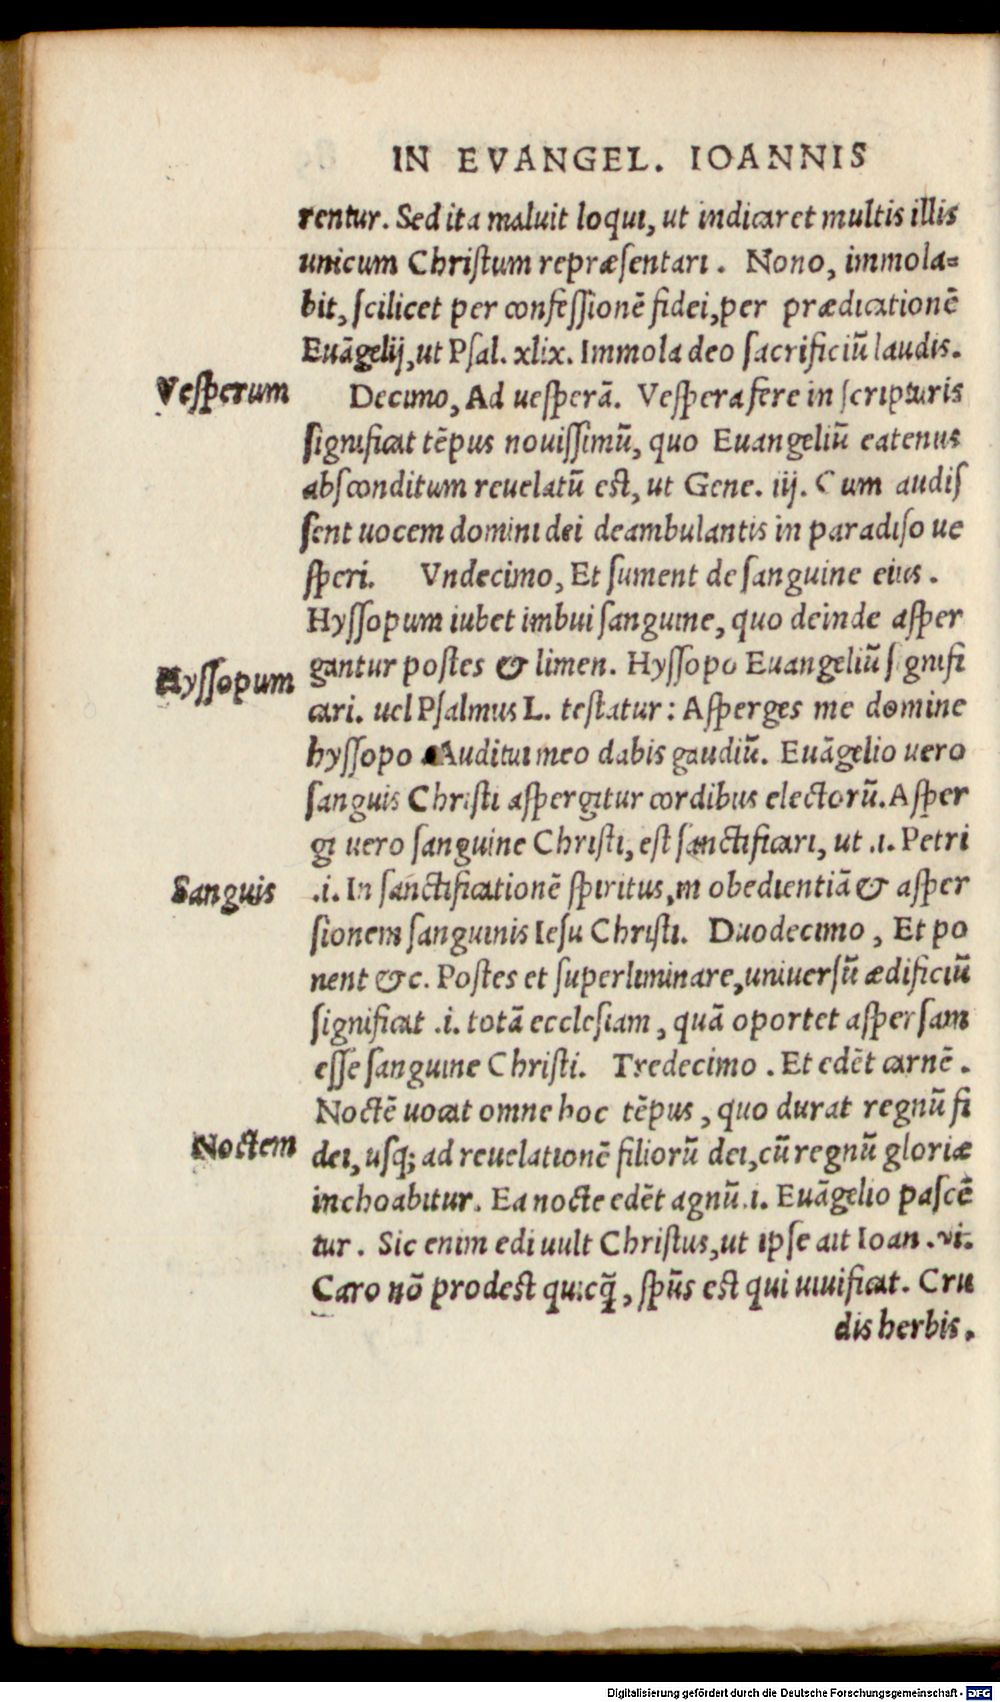 IN EVANGEL. IOANNIS
rentur. Sed ita maluit loqui, ut indicaret multis illis
unicum Chriſtum repræſentari. Nono, immola=
bit, ſcilicet per confeſſionē fidei, per prædicationē
Euāgelij, ut Pſal. xlix. Immola deo ſacrificiū laudis.
Veſperum
Decimo, Ad ueſperā. Veſpera fere in ſcripturis
ſignificat tēpus nouiſſimū, quo Euangeliū eatenus
abſconditum reuelatū eſt, ut Gene. iij. Cum audiſ
ſent uocem domini dei deambulantis in paradiſo ue
ſperi. Vndecimo, Et ſument de ſanguine eius.
Hyſſopum iubet imbui ſanguine, quo deinde aſper
Hyſſopum
gantur poſtes & limen. Hyſſopo Euangeliū ſignifi
cari. uel Pſalmus L. teſtatur: Aſperges me domine
hyſſopo Auditui meo dabis gaudiū. Euāgelio uero
ſanguis Chriſti aſpergitur cordibus electorū. Aſper
gi uero ſanguine Chriſti, eſt ſanctificari, ut .i. Petri
Sanguis
.i. In ſanctificationē ſpiritus, in obedientiā & aſper
ſionem ſanguinis Ieſu Chriſti. Duodecimo, Et po
nent &c. Poſtes et ſuperliminare, uniuerſū ædificiū
ſignificat .i. totā eccleſiam, quā oportet aſperſam
eſſe ſanguine Chriſti. Tredecimo. Et edēt carnē.
Noctē uocat omne hoc tēpus, quo durat regnū fi
Noctem
dei, uſq; ad reuelationē filiorū dei, cū regnū gloriæ
inchoabitur. Ea nocte edēt agnū .i. Euāgelio paſcē
tur. Sic enim edi uult Chriſtus, ut ipſe ait Ioan. vi.
Caro nō prodeſt quicq̄, ſpūs eſt qui uiuificat. Cru
dis herbis.
Digitalisierung gefördert durch die Deutsche Forschungsgemeinschaft - DFG